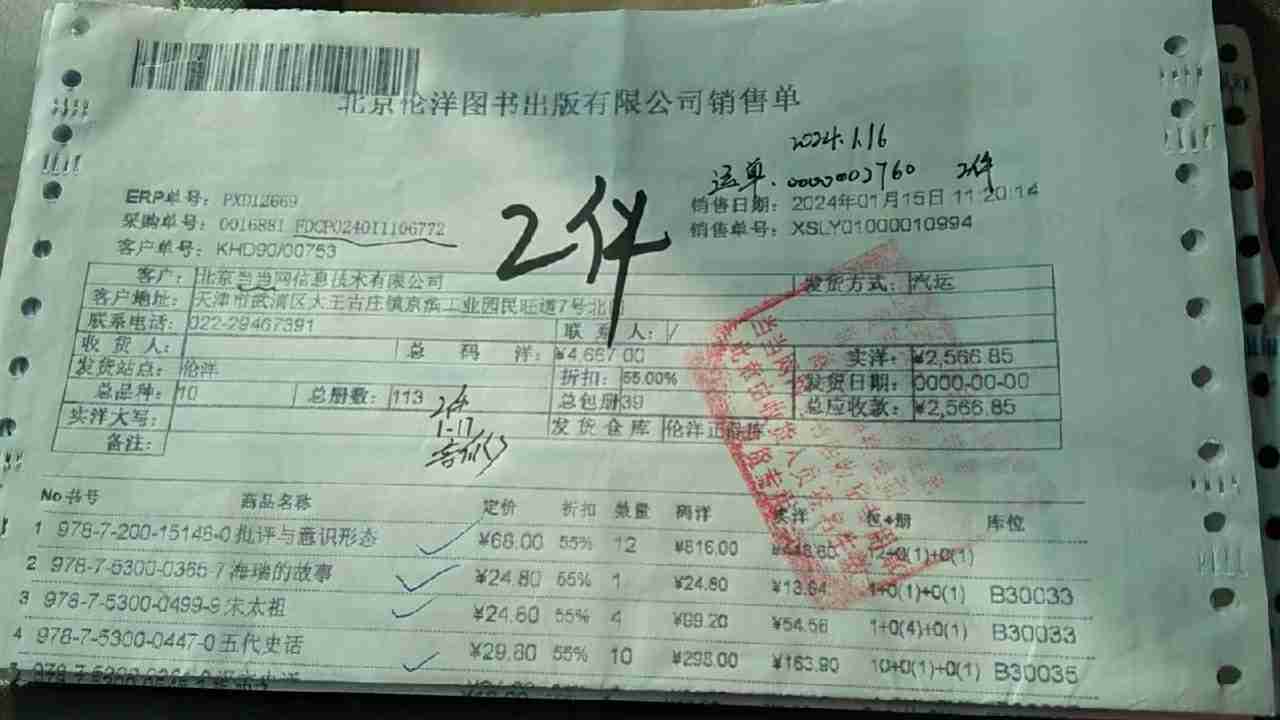 北京伦洋图书出版有限公司销售单
2024.1.16
运单.0000003760 2件
2件
ERP单号：PXD12669
销售日期：2024年01月15日 11:20:14
采购单号：0016881 FDCP0240111106772
销售单号：XSLY01000010994
客户单号：KHD90/00753
客户：北京当当网信息技术有限公司 发货方式：汽运
客户地址：天津市武清区大王古庄镇京滨工业园民旺道7号北
联系电话：022-29467391 联系人：/
收货人： 总码洋：¥4,667.00 实洋：¥2,566.85
发货站点：伦洋 折扣：55.00% 发货日期：0000-00-00
总品种：10 总册数：113 总包册39 总应收款：¥2,566.85
实洋大写： 发货仓库 伦洋正品
备注：
2件
1-17
No 书号 商品名称 定价 折扣 数量 码洋 实洋 包+册 库位
1 978-7-200-15148-0 批评与意识形态 ¥68.00 55% 12 ¥816.00 ¥448.80
2 978-7-5300-0365-7 海瑞的故事 ¥24.80 55% 1 ¥24.80 ¥13.64 1+0(1)+0(1) B30033
3 978-7-5300-0499-9 宋太祖 ¥24.80 55% 4 ¥99.20 ¥54.56 1+0(4)+0(1) B30033
4 978-7-5300-0447-0 五代史话 ¥29.80 55% 10 ¥298.00 ¥163.90 10+0(1)+0(1) B30035